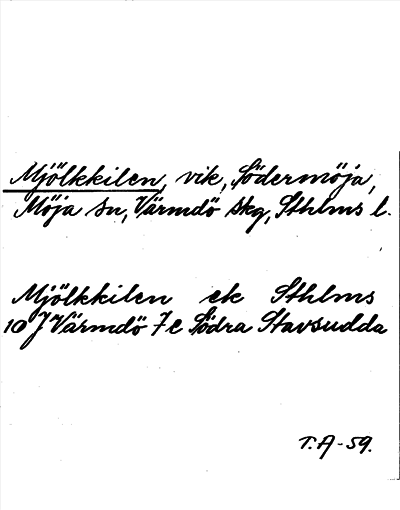 Mjölkkilen, vik, Södermöja,
Möja sn, Värmdö skg, Sthlms l.
Mjölkkilen ek Sthlms
10 J Värmdö 7e Södra Stavsudda
T.A-59.